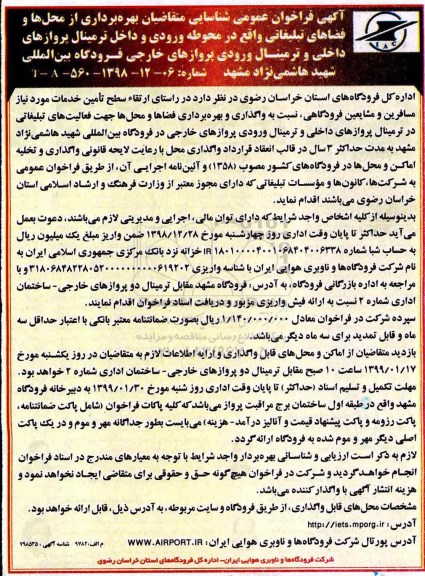 آگهی فراخوان عمومی شناسایی متقاضیان بهره‌برداری از محل‌ها و
فضاهای تبلیغاتی واقع در محوطه ورودی و داخل ترمینال پروازهای
داخلی و ترمینال ورودی پروازهای خارجی فرودگاه بین‌المللی
شهید هاشمی‌نژاد مشهد شماره: ۰۶-۱۲-۱۳۹۸-۵۶۰-T-A
اداره کل فرودگاه‌های استان خراسان رضوی در نظر دارد در راستای ارتقاء سطح تأمین خدمات مورد نیاز
مسافرین و مشایعین فرودگاهی، نسبت به واگذاری و بهره‌برداری فضاها و محل‌ها جهت فعالیت‌های تبلیغاتی
در ترمینال پروازهای داخلی و ترمینال ورودی پروازهای خارجی در فرودگاه بین‌المللی شهید هاشمی‌نژاد
مشهد به مدت حداکثر ۳ سال در قالب انعقاد قرارداد واگذاری محل با رعایت لایحه قانونی واگذاری و تخلیه
اماکن و محل‌ها در فرودگاه‌های کشور مصوب (۱۳۵۸) و آئین‌نامه اجرایی آن، از طریق فراخوان عمومی
به شرکت‌ها، کانون‌ها و مؤسسات تبلیغاتی که دارای مجوز معتبر از وزارت فرهنگ و ارشاد اسلامی استان
خراسان رضوی می‌باشند اقدام نماید.
بدینوسیله از کلیه اشخاص واجد شرایط که دارای توان مالی، اجرایی و مدیریتی لازم می‌باشند، دعوت بعمل
می‌آید حداکثر تا پایان وقت اداری روز چهارشنبه مورخ ۱۳۹۸/۱۲/۲۸ ضمن واریز مبلغ یک میلیون ریال
به حساب شبا شماره IR ۱۸۰۱۰۰۰۰۴۰۰۱۰۶۴۰۴۰۰۶۳۳۸ خزانه نزد بانک مرکزی جمهوری اسلامی ایران به
نام شرکت فرودگاه‌ها و ناوبری هوایی ایران با شناسه واریزی و با
مراجعه به اداره بازرگانی فرودگاه، به آدرس: فرودگاه مشهد مقابل ترمینال دو پروازهای خارجی- ساختمان
اداری شماره ۲ نسبت به ارائه فیش واریزی مزبور و دریافت اسناد فراخوان اقدام نمایند.
سپرده شرکت در فراخوان معادل ۱/۱۴۰/۰۰۰/۰۰۰ ریال بصورت ضمانتنامه معتبر بانکی با اعتبار حداقل سه
ماه و قابل تمدید برای سه ماه دیگر می‌باشد.
بازدید متقاضیان از اماکن و محل‌های قابل واگذاری و ارایه اطلاعات لازم به متقاضیان در روز یکشنبه مورخ
۱۳۹۹/۰۱/۱۷ ساعت ۱۰ صبح مقابل ترمینال دو پروازهای خارجی- ساختمان اداری شماره ۲ خواهد بود.
مهلت تکمیل و تسلیم اسناد (حداکثر) تا پایان وقت اداری روز شنبه مورخ ۱۳۹۹/۰۱/۳۰ به دبیرخانه فرودگاه
مشهد واقع در طبقه اول ساختمان برج مراقبت پرواز می‌باشد که کلیه پاکات فراخوان (شامل پاکت ضمانتنامه،
پاکت رزومه و پاکت پیشنهاد قیمت و آنالیز درآمد- هزینه) می‌بایست بطور جداگانه مهر و موم و در یک پاکت
اصلی دیگر مهر و موم شده به فرودگاه ارائه گردد.
لازم به ذکر است ارزیابی و شناسائی بهره‌بردار واجد شرایط با توجه به معیارهای مندرج در اسناد فراخوان
انجام خواهد گردید و شرکت در فراخوان هیچ‌گونه حق و حقوقی برای متقاضی ایجاد نخواهد نمود و
هزینه انتشار آگهی با واگذار کننده می‌باشد.
مشخصات محل‌های قابل واگذاری، از طریق فرودگاه و سایت مربوطه، به آدرس ذیل، قابل ارائه خواهد بود.
آدرس: http://iets.mporg.ir
آدرس پورتال شرکت فرودگاه‌ها و ناوبری هوایی ایران: WWW.AIRPORT.IR م الف: ۹۷۸۲ شناسه آگهی: ۷۹۸۵۳۵
شرکت فرودگاه‌ها و ناوبری هوایی ایران- اداره کل فرودگاه‌های استان خراسان رضوی